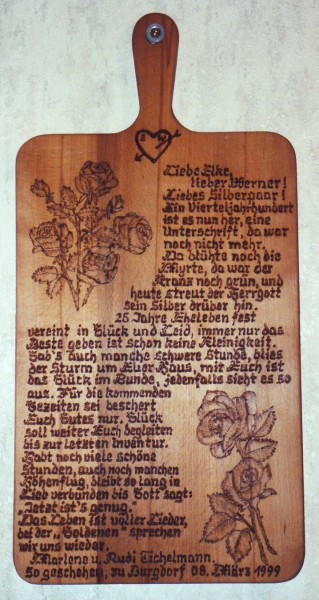 Liebe Elke,
lieber Werner!
Liebes Silberpaar!
Ein Vierteljahrhundert
ist es nun her, eine
Unterschrift, da war
noch nicht mehr.
Da blühte noch die
Myrte, da war der
Kranz noch grün, und
heute streut der Herrgott
sein Silber drüber hin.
25 Jahre Eheleben fest
vereint in Glück und Leid, immer nur das
Beste geben ist schon keine Kleinigkeit.
Gab's auch manche schwere Stunde, blies
der Sturm um Euer Haus, mit Euch ist
das Glück im Bunde, jedenfalls sieht es so
aus. Für die kommenden
Gezeiten sei beschert
Euch Gutes nur. Glück
soll weiter Euch begleiten
bis zur letzten Inventur.
Habt noch viele schöne
Stunden, auch noch manchen
Höhenflug, bleibt so lang in
Lieb verbunden bis Gott sagt:
"Jetzt ist's genug."
Das Leben ist voller Lieder,
bei der "Goldenen" sprechen
wir uns wieder.
Marlene u. Rudi Tichelmann.
So geschehen, zu Burgdorf 08. März 1999